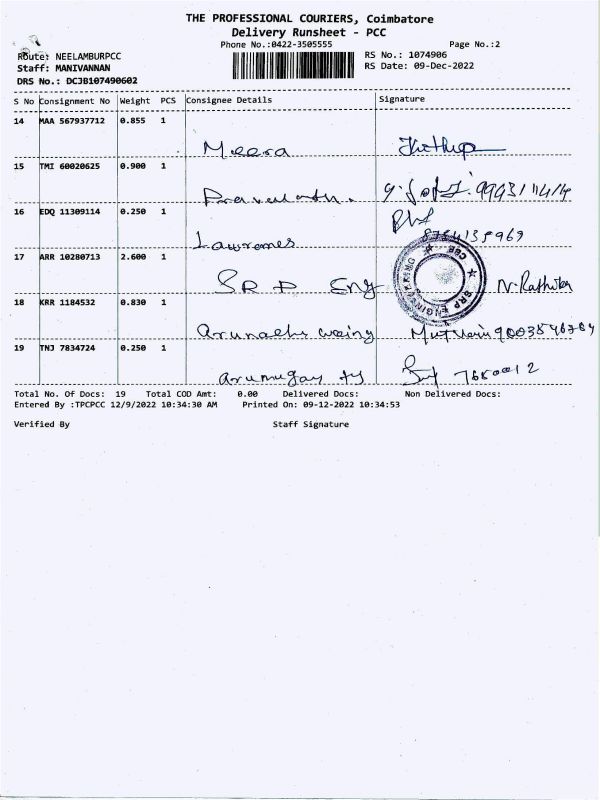 THE PROFESSIONAL COURIERS, Coimbatore
Delivery Runsheet - PCC
Phone No.:0422-3505555 Page No.:2
Route: NEELAMBURPCC RS No.: 1074906
Staff: MANIVANNAN RS Date: 09-Dec-2022
DRS No.: DCJB107490602
S No Consignment No Weight PCS Consignee Details Signature
14 MAA 567937712 0.855 1
Meera
15 TMI 60020625 0.900 1
16 EDQ 11309114 0.250 1
17 ARR 10280713 2.600 1
SRP Eng N. Rathika
18 KRR 1184532 0.830 1
19 TNJ 7834724 0.250 1
Total No. Of Docs: 19 Total COD Amt: 0.00 Delivered Docs: Non Delivered Docs:
Entered By :TPCPCC 12/9/2022 10:34:30 AM Printed On: 09-12-2022 10:34:53
Verified By Staff Signature
SRP ENGINEERING CBE